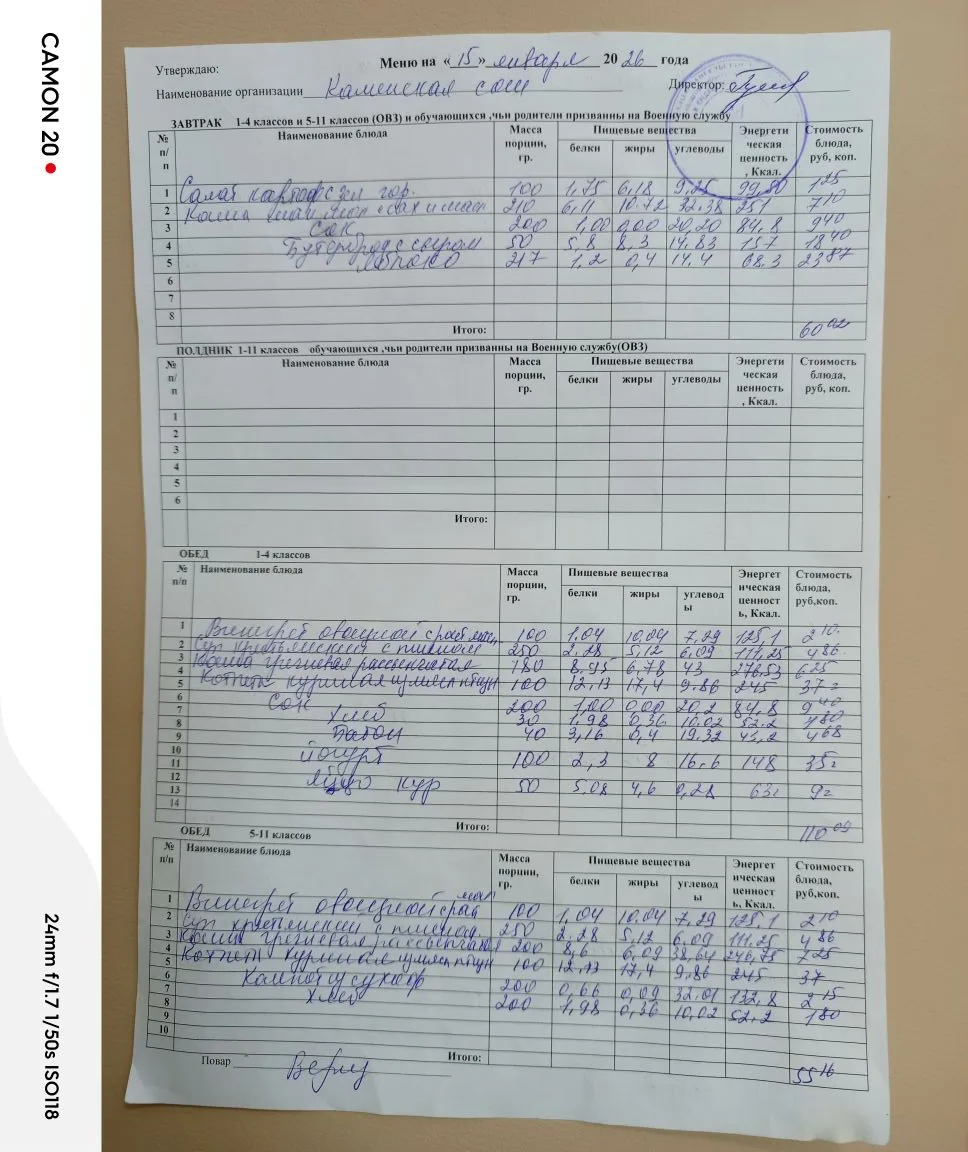 CAMON 20
24mm f/1.7 1/50s ISO118
Утверждаю:
Меню на «15» января 2026 года
Наименование организации Каменская сош Директор:
ЗАВТРАК 1-4 классов и 5-11 классов (ОВЗ) и обучающихся ,чьи родители призванны на Военную службу
№ п/п Наименование блюда Масса порции, гр. Пищевые вещества белки жиры углеводы Энергети ческая ценность , Ккал. Стоимость блюда, руб, коп.
1 Салат гор. 100 1,75 6,18 99,80 125
2 Каша 210 6,11 10.72 32.38 251 7 10
3 Сок 200 1,00 0,00 20,20 84,8 9 40
4 Бутерброд с сыром 50 5,8 8,3 14,83 157 18 40
5 Яблоко 217 1,2 0,4 14.4 68.3 23 87
6
7
8
Итого: 60 02
ПОЛДНИК 1-11 классов обучающихся ,чьи родители призванны на Военную службу(ОВЗ)
№ п/п Наименование блюда Масса порции, гр. Пищевые вещества белки жиры углеводы Энергети ческая ценность , Ккал. Стоимость блюда, руб, коп.
1
2
3
4
5
6
Итого:
ОБЕД 1-4 классов
№ п/п Наименование блюда Масса порции, гр. Пищевые вещества белки жиры углевод ы Энергет ическая ценност ь, Ккал. Стоимость блюда, руб,коп.
1 Винегрет овощной с раст 100 1,04 10,04 7,29 125,1 2 10
2 Суп крестьянский с пшеном 250 2.28 5,12 6,09 111,25 4 86
3 Каша гречневая рассыпчатая 180 8,95 6,78 43 276,53 6 25
4 Котлеты 100 12,13 17,4 9.86 245 37
5
6 Сок 200 1,00 0,00 20,2 84,8 9 40
7 Хлеб 30 1,98 0,36 10.02 52.2 1 80
8 Батон 40 3,16 0,4 19.32 4 68
9
10 йогурт 100 2,3 8 16,6 148 35
11
12 яйцо кур 50 5,08 4,6 0,28 63 9
13
14
Итого: 110 09
ОБЕД 5-11 классов
№ п/п Наименование блюда Масса порции, гр. Пищевые вещества белки жиры углевод ы Энергет ическая ценност ь, Ккал. Стоимость блюда, руб,коп.
1 Винегрет овощной с раст 100 1,04 10,04 7,29 125,1 2 10
2 Суп крестьянский с пшеном 250 2.28 5,12 6,09 111,25 4 86
3 Каша гречневая рассыпчатая 200 8,6 6,09 38,64 246,75 7 25
4 Котлеты 100 12,13 17,4 9,86 245 37
5
6 Компот сухофр 200 0,66 0,09 32.01 132,8 2 15
7 Хлеб 200 1,98 0,36 10,02 52.2 1 80
8
9
10
Итого: 55 16
Повар